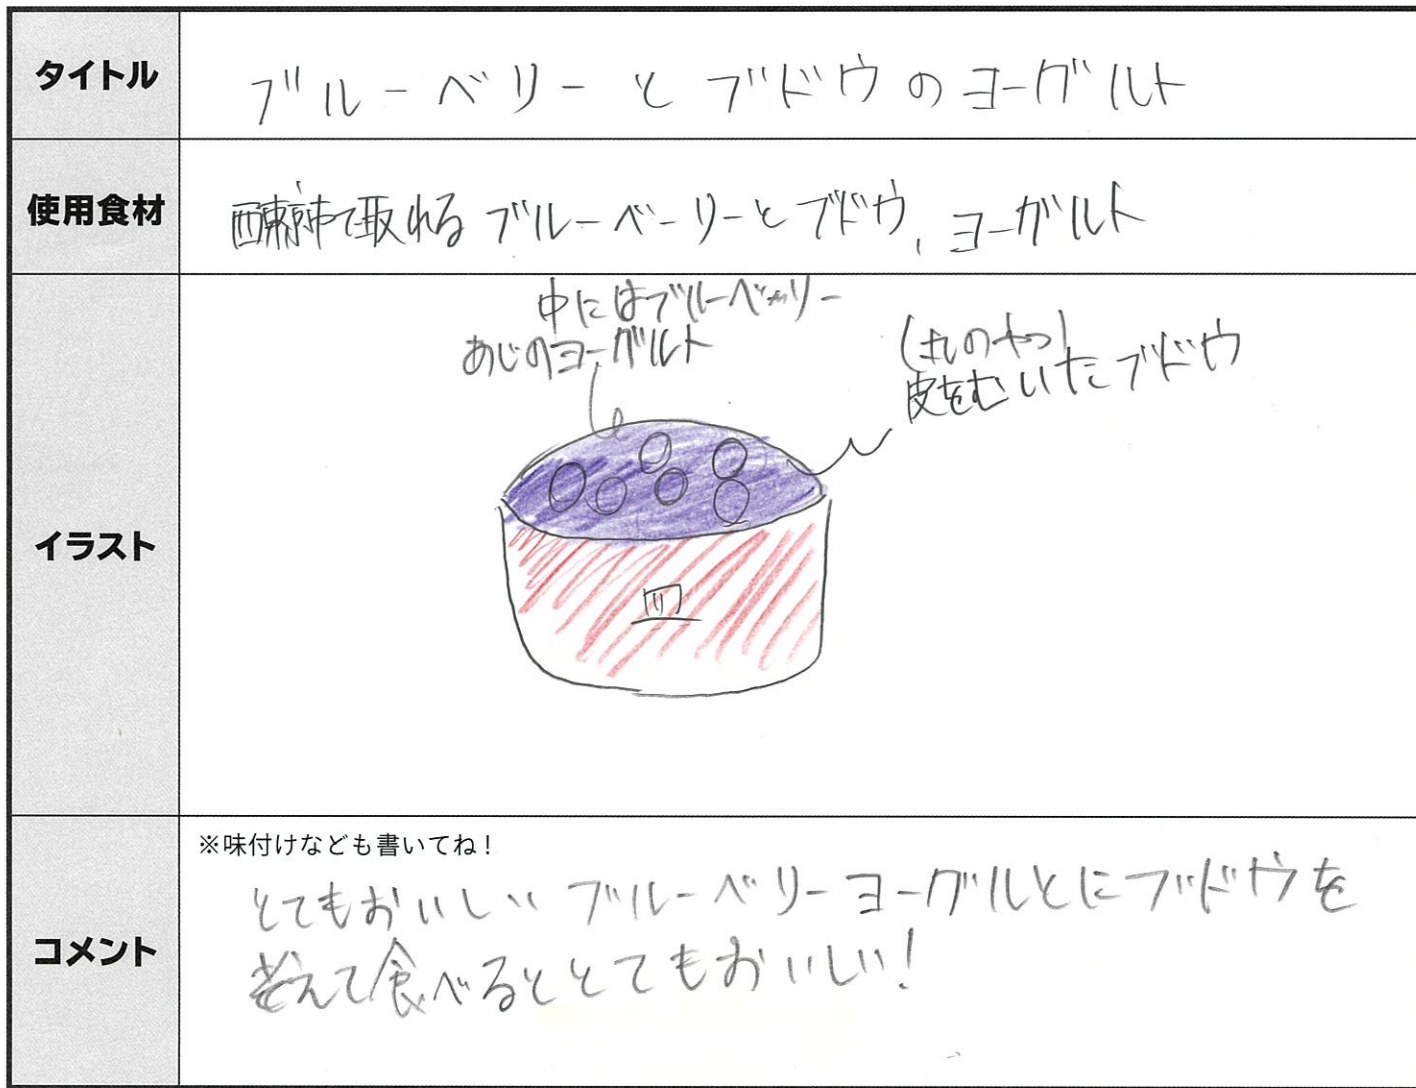 タイトル
ブルーベリーとブドウのヨーグルト
使用食材
西東京市で取れるブルーベーリーとブドウ、ヨーグルト
イラスト
中にはブルーベリー
あじのヨーグルト
皮をむいたブドウ
皿
コメント
※味付けなども書いてね!
とてもおいしいブルーベリーヨーグルとにブドウを
食べるととてもおいしい!